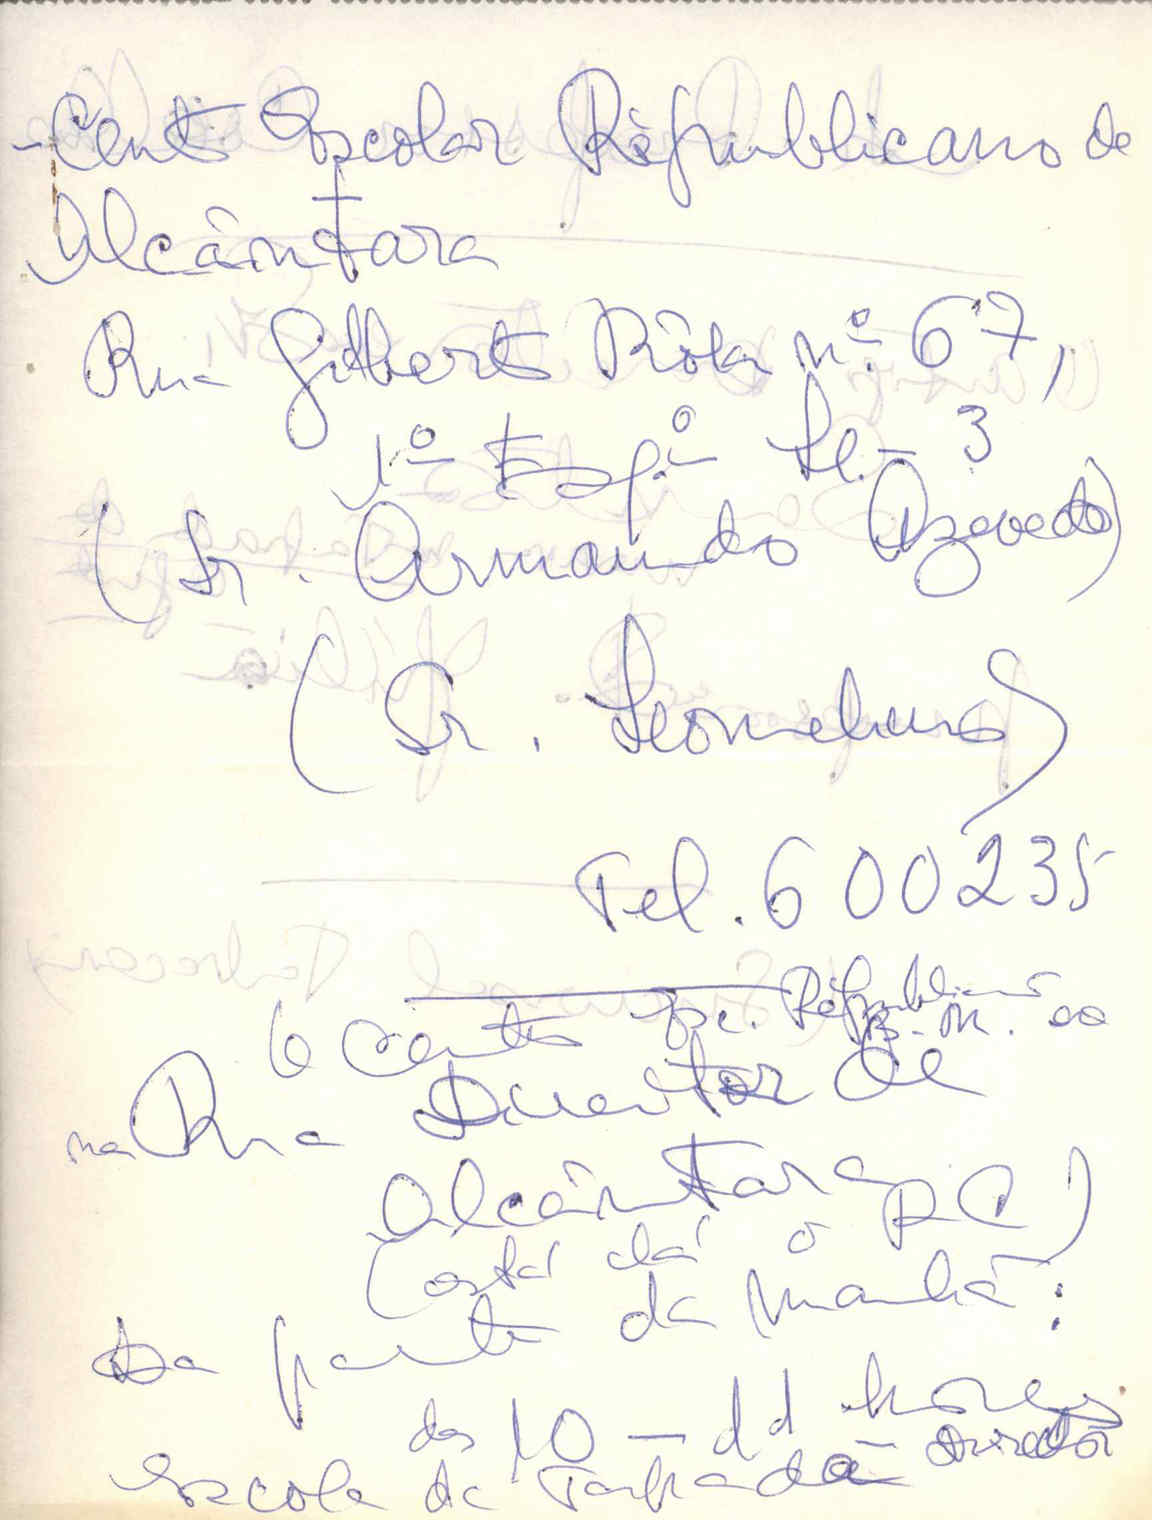 - Cent Escolar Républicano de
Alcântara
Rua Gilbert Rôla nº. 67,
1º Esqº
(Sr. Armando Azevedo)
(Sr.
Tel. 600235
O Cento Esc. Républicano
B. M.
na Rua Director de
Alcântara
(está lá o PC)
Da parte da manhã:
das 10 - 11 horas
Escola da Tapada Director